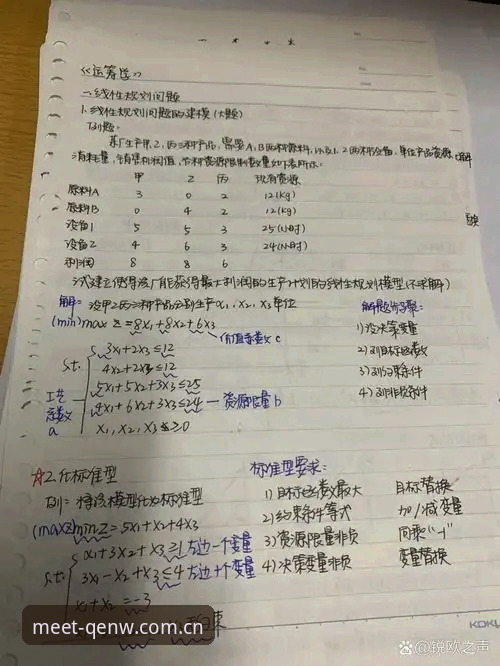 一 二 三 四 五 六
《运筹学》
一、线性规划问题
1. 线性规划问题的建模(大题)
例题:
某厂生产甲, 乙, 丙三种产品, 需要A, B两种原料, 以及1, 2两种设备, 单位产品资源
消耗量, 单位利润值, 各种资源限制数量如下表所示:
甲 乙 丙 现有资源
原料A 3 0 2 12(kg)
原料B 0 4 2 12(kg)
设备1 5 5 3 25(小时)
设备2 4 6 3 24(小时)
利润 8 8 6
试建立使得该厂能获得最大利润的生产计划的线性规划模型(不求解)
解: 设甲乙丙三种产品分别生产x₁, x₂, x₃单位
(min) max z = 8x₁+8x₂+6x₃
价值系数c
s.t. 3x₁+2x₃≤12
4x₂+2x3≤12
5x₁+5x₂+3x₃≤25
4x₁+6x₂+3x₃≤24 — 资源限量b
x₁, x₂, x₃≥0
工艺系数a
解题步骤:
1) 设决策变量
2) 列目标函数
3) 列约束条件
4) 列非负条件
☆2. 化标准型
例: 将该模型化为标准型
(maxz) minz=5x₁+x₂+4x₃
s.t. x₁+3x₂+x₃≥1 左边一个变量
3x₁-x₂+x₃≤4 左边+个变量
x₁+x₂=-3
标准型要求:
1) 目标函数最大 目标替换
2) 约束条件等式 加/减变量
3) 资源限量非负 同乘"-1"
4) 决策变量非负 变量替换
meet-qenw.com.cn
KOKU
百度@锐欧之声